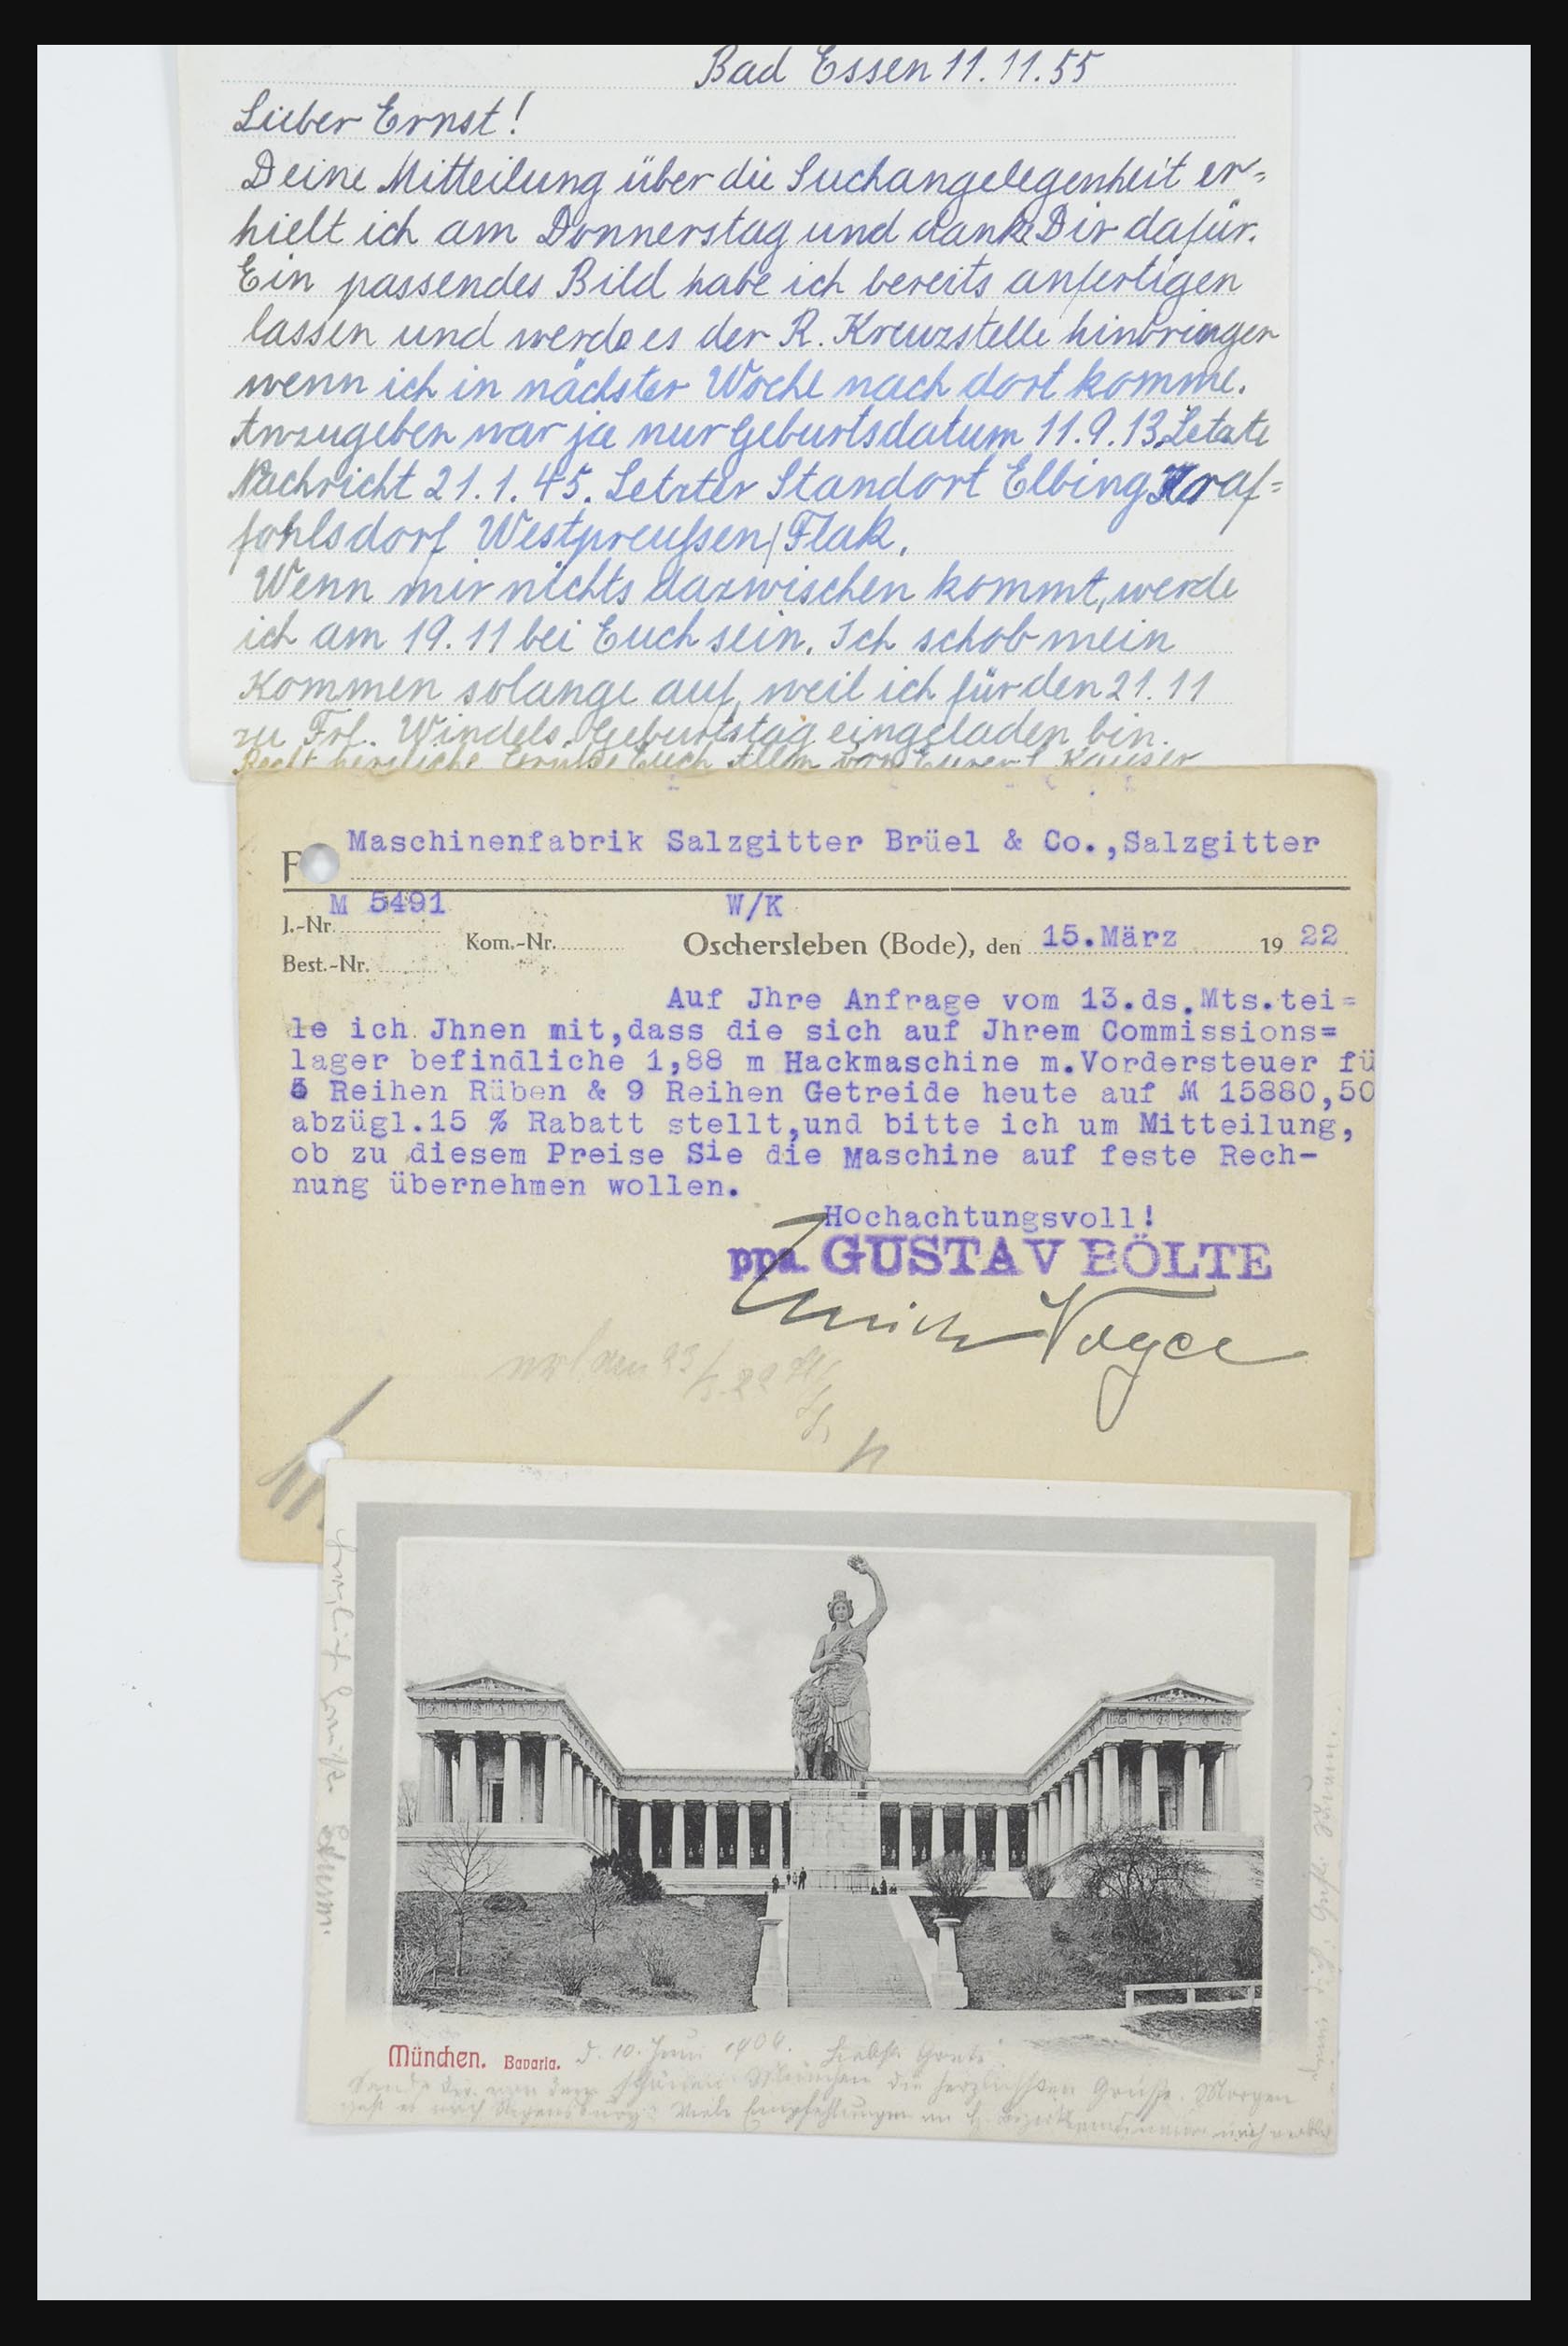 Bad Essen 11.11.55
Lieber Ernst!
Deine Mitteilung über die Suchangelegenheit er=
hielt ich am Donnerstag und danke Dir dafür.
Ein passendes Bild habe ich bereits anfertigen
lassen und werde es der R. Kreuzstelle hinbringen
wenn ich in nächster Woche nach dort komme.
Anzugeben war ja nur Geburtsdatum 11.9.13. Letzte
Nachricht 21.1.45. Letzter Standort Elbing Kraf=
fohlsdorf Westpreußen/Flak.
Wenn mir nichts dazwischen kommt, werde
ich am 19.11 bei Euch sein. Ich schob mein
Kommen solange auf, weil ich für den 21.11
zu Frl. Windels Geburtstag eingeladen bin.
Recht herzliche Grüße Euch Allen von Eurer
F
Maschinenfabrik Salzgitter Brüel & Co.,Salzgitter
J.-Nr. M 5491 W/K
Kom.-Nr. Oschersleben (Bode), den 15.März 1922
Best.-Nr.
Auf Jhre Anfrage vom 13.ds.Mts.tei=
le ich Jhnen mit,dass die sich auf Jhrem Commissions=
lager befindliche 1,88 m Hackmaschine m.Vordersteuer fü
5 Reihen Rüben & 9 Reihen Getreide heute auf M 15880,50
abzügl.15 % Rabatt stellt,und bitte ich um Mitteilung,
ob zu diesem Preise Sie die Maschine auf feste Rech-
nung übernehmen wollen.
Hochachtungsvoll!
ppa. GUSTAV BÖLTE
München. Bavaria. d. 10. Juni 1904. Liebste
Sende Dir von dem schönen München die herzlichsten Grüße. Morgen
geht es nach Regensburg. Viele Empfehlungen an